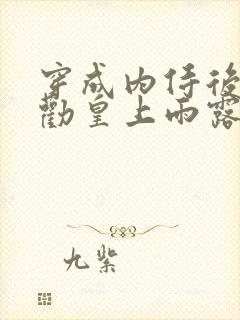 穿成內侍後
勸皇上雨露
九紫